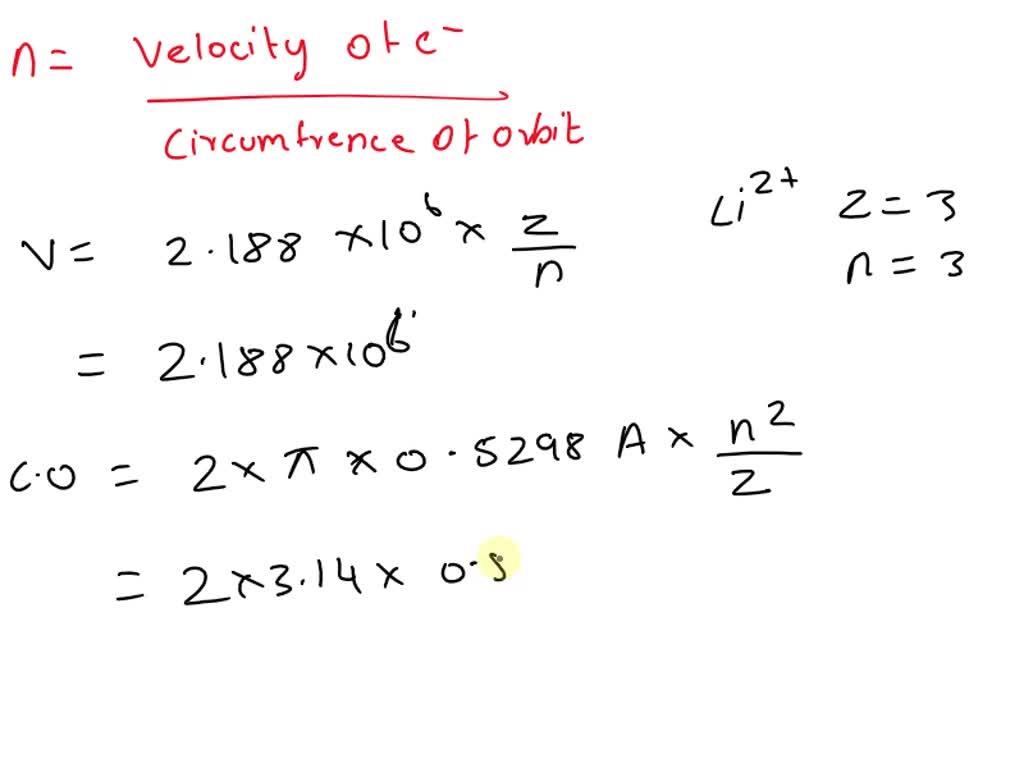 n = Velocity of e-
Circumfrence of orbit
V = 2.188 × 10^6 × z/n
Li^2+ z = 3
n = 3
= 2.188 × 10^6
C.O = 2 × π × 0.5298 A × n^2/z
= 2 × 3.14 × 0.5